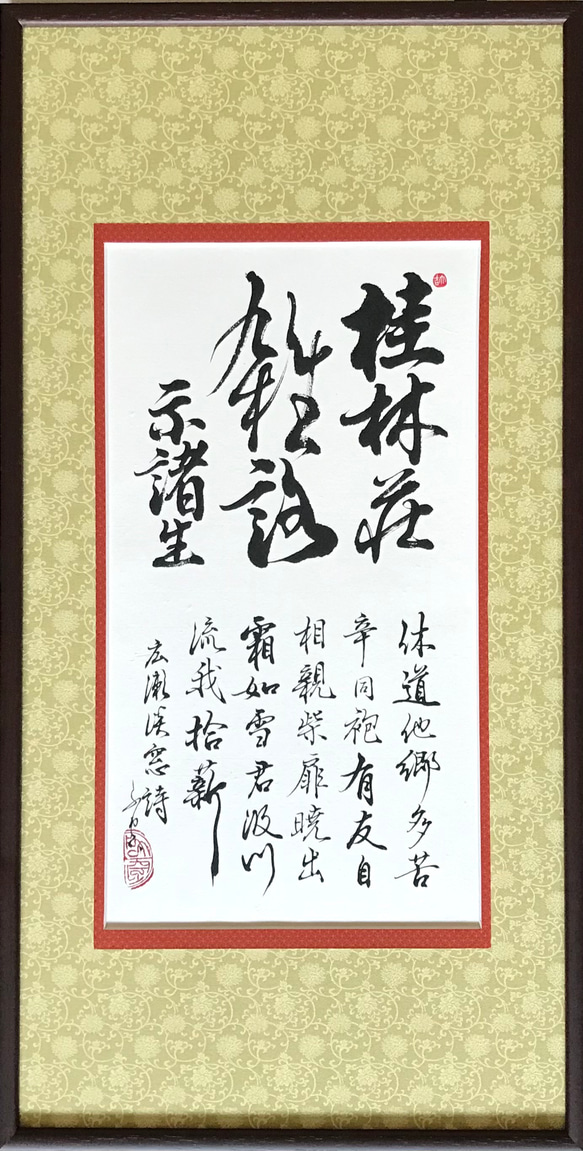 桂林荘
雑詠
示諸生
休道他郷多苦
辛同袍有友自
相親柴扉暁出
霜如雪君汲川
流我拾薪
広瀬淡窓詩